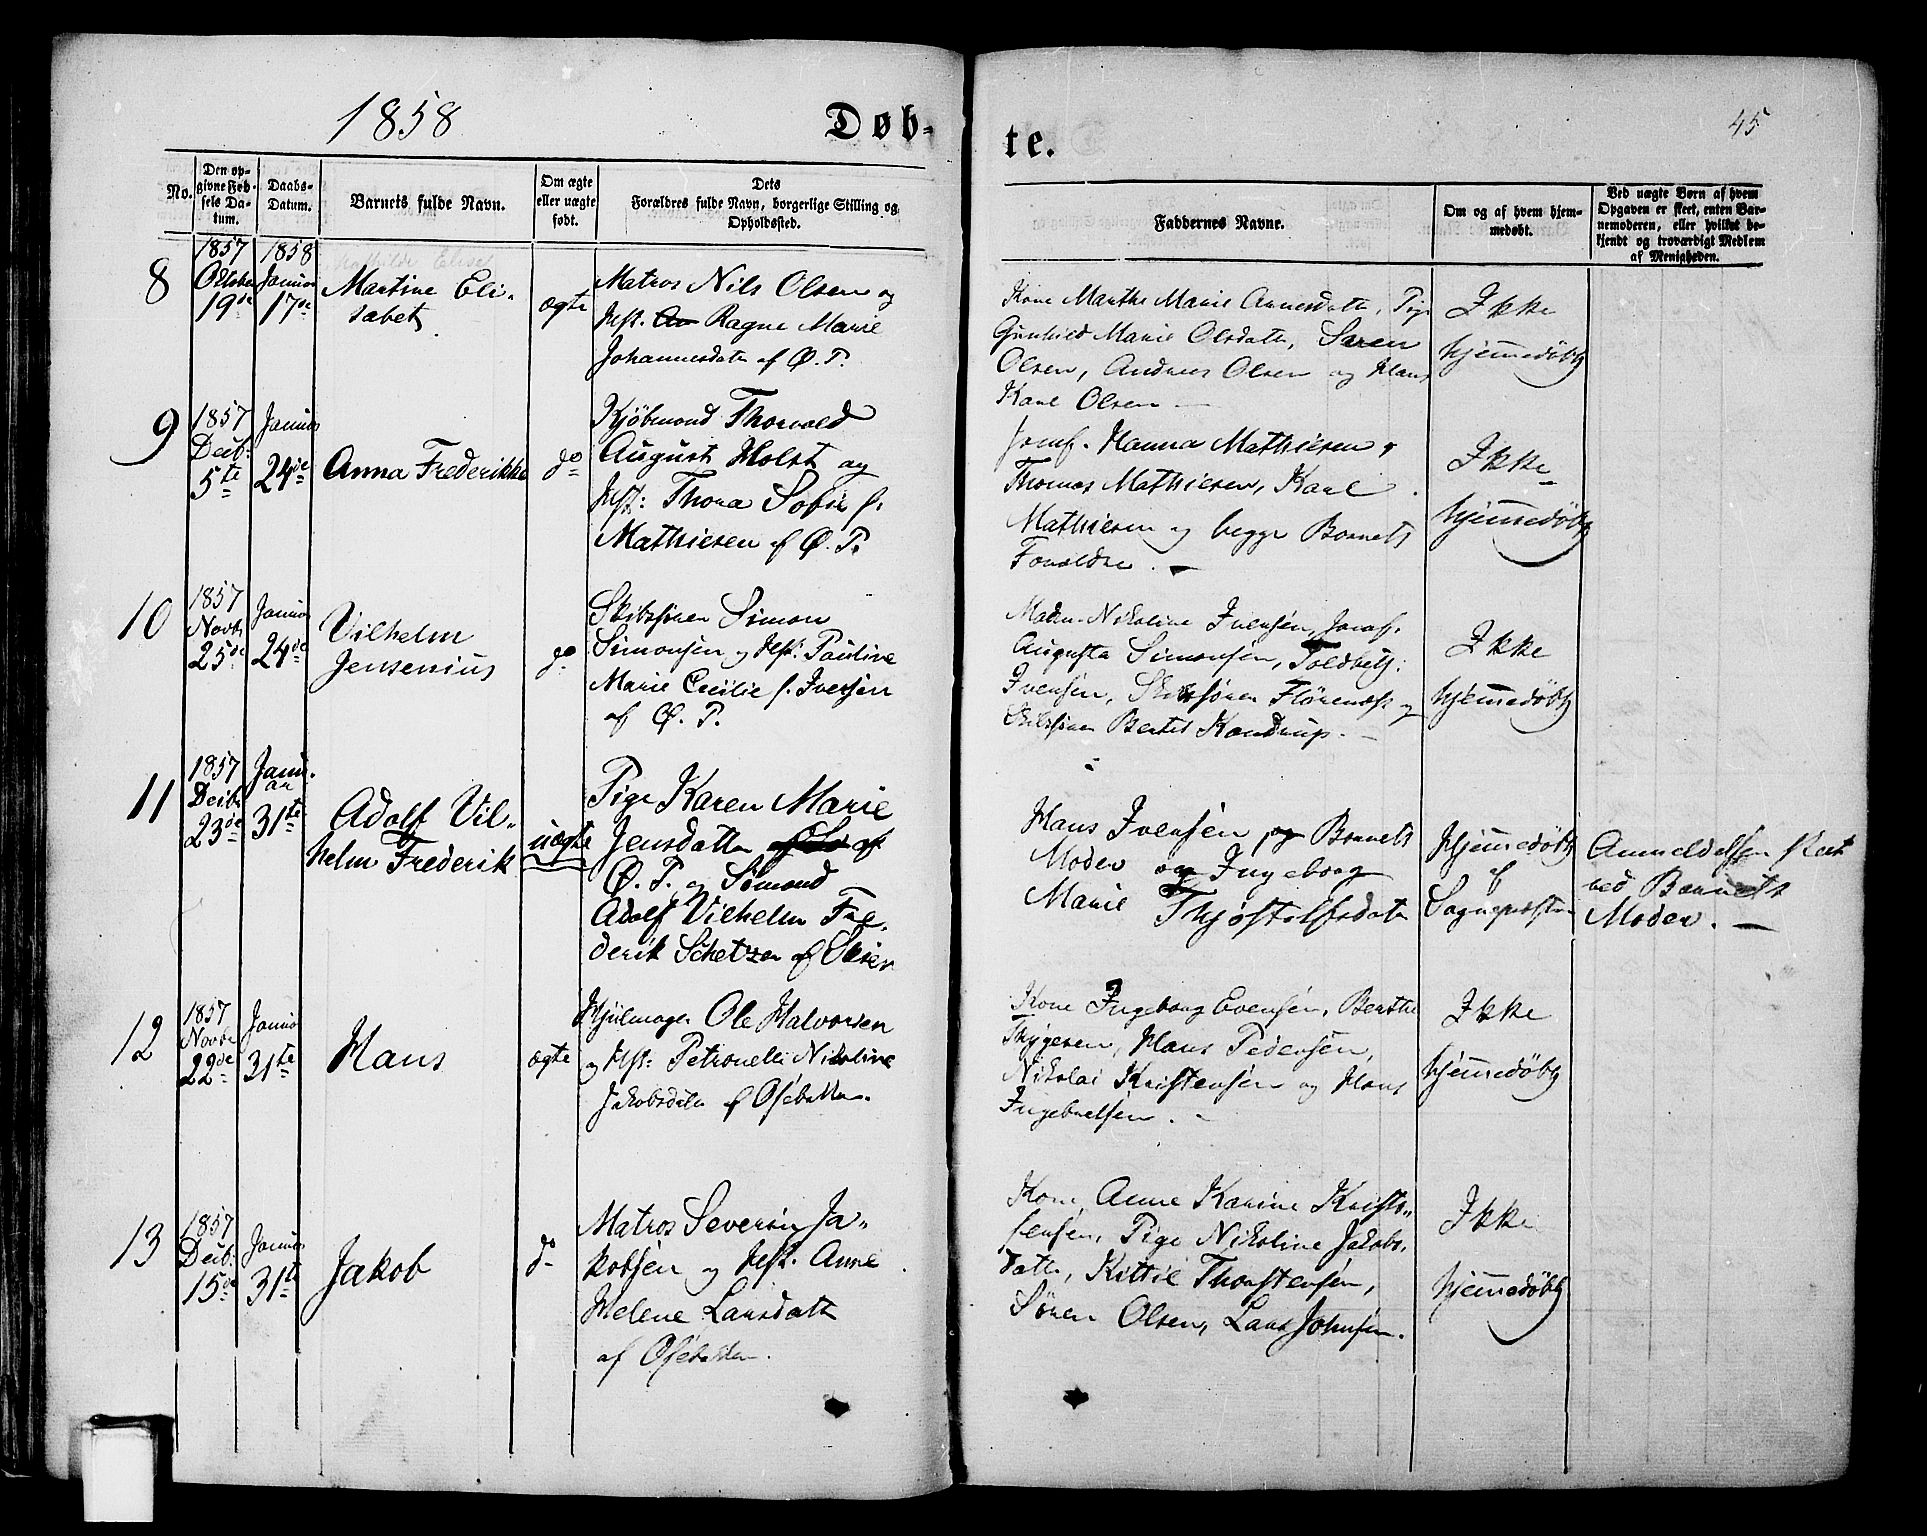 1858
Døb-
te.
45
No.
Den op-
givne Fød-
sels Da-
tum.
Daabs-
Datum.
Barnets fulde Navn.
Om ægte
eller uægte
født.
Dets
Forældres fulde Navn, borgerlige Stilling og
Opholdssted.
Faddernes Navne.
Om og af hvem hjem-
medøbt.
Ved uægte Børn af hvem
Opgaven er skeet, enten Bar-
nemoderen, eller hvilket be-
kjendt og troværdigt Medlem
af Menigheden.
8
1857
October
19de
1858
Januar
17de
Martine Eli-
sabet
ægte
Matros Nils Olsen og
Hst. Ragne Marie
Johannesdatr af Ø. P.
Kone Marthe Marie Annesdattr, Pige
Gunhild Marie Olsdattr, Søren
Olsen, Andreas Olsen og Hans
Karl Olsen
Ikke
hjemmedøbt
9
1857
Decbr
5te
Januar
24de
Anna Frederikke
do
Kjøbmand Thorvald
August Holst og
Hst: Thora Sofie f.
Mathiesen af Ø. P.
Jomf. Hanna Mathiesen,
Thomas Mathiesen, Karl
Mathiesen og begge Barnets
Forældre.
Ikke
hjemmedøbt
10
1857
Novbr
25de
Januar
24de
Vilhelm
Jensenius
do
Skibsfører Simon
Simonsen og Hst: Pauline
Marie Cecilie f. Iversen
af Ø. P.
Madm. Nikoline Iversen, Jomf.
Augusta Simonsen, Toldbetj.
Iversen, Skibsfører og
Skibsfører Bertel Kandrup.
Ikke
hjemmedøbt
11
1857
Decbr
23de
Janu-
ar
31te
Adolf Vil-
helm Frederik
uægte
Pige Karen Marie
Jensdattr af
Ø. P. og Sømand
Adolf Vilhelm Fre-
derik Schetzer af
Hans Iversen, Barnets
Moder og Ingeborg
Marie Thjøstolfsdatr
Hjemmedøbt
af
Sognepresten
Anmeldelsen skeet
ved Barnets
Moder.
12
1857
Novbr
22de
Januar
31te
Hans
ægte
Hjulmager Ole Halvorsen
og Hst: Petronelle Nikoline
Jakobsdatr af Osebakken.
Kone Ingeborg Evensen, Berthe
Thygesen, Hans Pedersen,
Nikolai Kristensen og Hans
Ingebretsen.
Ikke
hjemmedøbt
13
1857
Decbr.
15de
Januar
31te
Jakob
do
Matros Severin Ja-
kobsen og Hst. Anne
Helene Larsdattr
af Osebakken.
Kone Anne Karine Kristo-
fersen, Pige Nikoline Jakobs-
datter, Kittil Thorstensen,
Søren Olsen, Lars Johnsen.
Ikke
hjemmedøbt